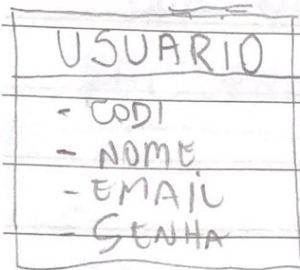 USUARIO
- CODI
- NOME
- EMAIL
- SENHA